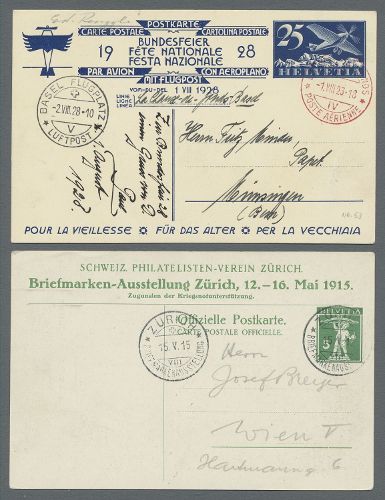 POSTKARTE
CARTE POSTALE CARTOLINA POSTALE
BUNDESFEIER
19 FÊTE NATIONALE 28
FESTA NAZIONALE
PAR AVION CON AEROPLANO
MIT FLUGPOST
VON-DU-DEL 1 VIII 1928
LINIE
LIGNE
LINEA
25
HELVETIA
BASEL FLUGPLATZ
-2.VIII.28-10
V
LUFTPOST
-1.VIII.28-18
IV
POSTE AÉRIENNE
La Chaux-de-Fonds-Basel
Herrn Fritz
Münsingen
(Bern)
1. August
1928
POUR LA VIEILLESSE * FÜR DAS ALTER * PER LA VECCHIAIA
SCHWEIZ. PHILATELISTEN-VEREIN ZÜRICH.
Briefmarken-Ausstellung Zürich, 12.–16. Mai 1915.
Zugunsten der Kriegsnotunterstützung.
Offizielle Postkarte.
CARTE POSTALE OFFICIELLE.
HELVETIA
5
ZÜRICH
15.V.15
VIII
BRIEFMARKENAUSSTELLUNG
Herrn
Josef Breyer
Wien V
6